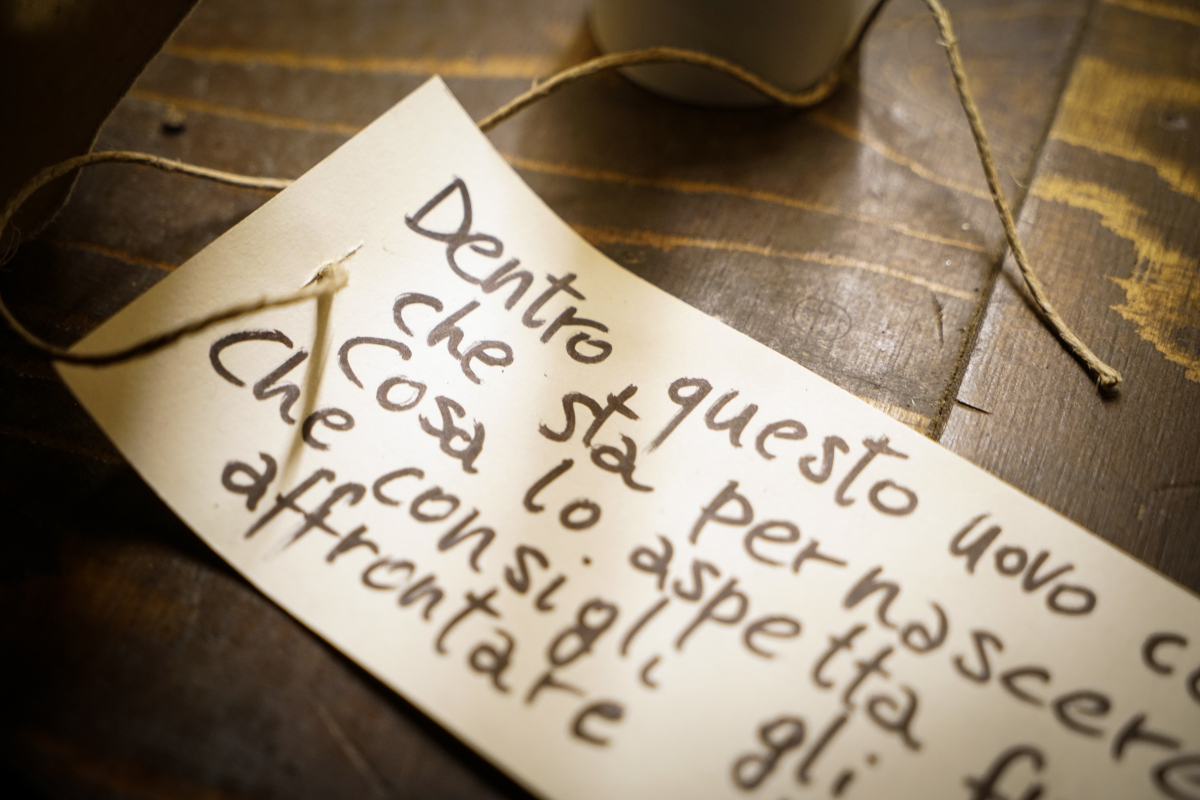 Dentro questo uovo
che sta per nascere
Cosa lo aspetta
Che consigli gli
affrontare